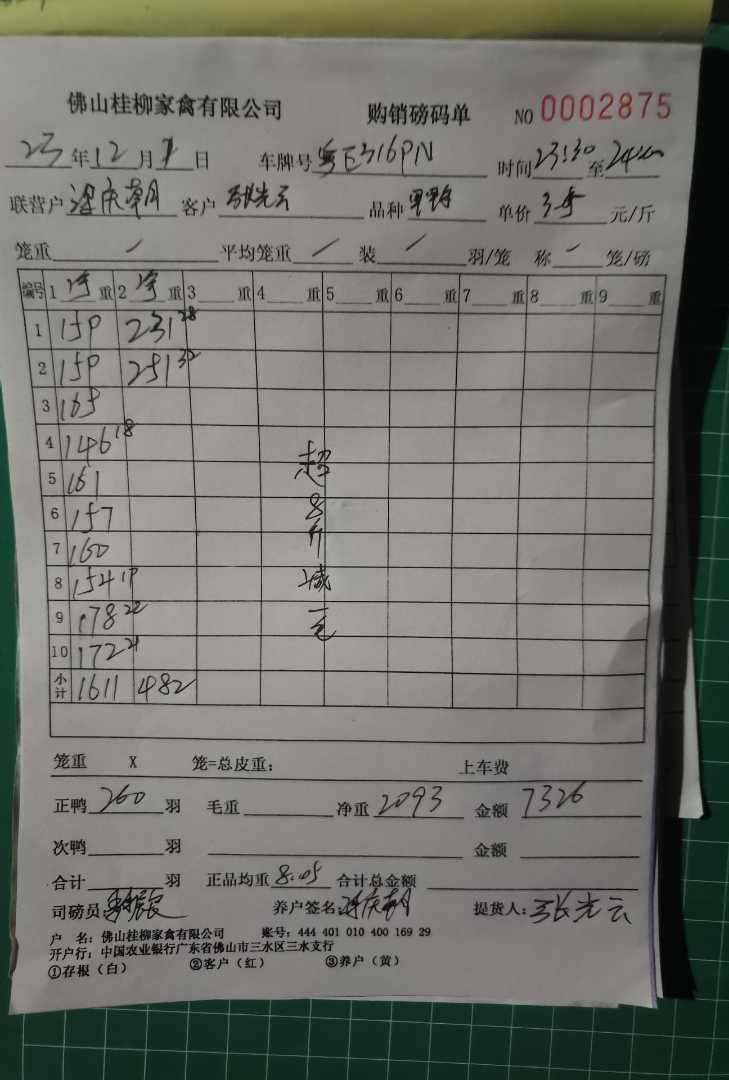 佛山桂柳家禽有限公司 购销磅码单 NO 0002875
23年12月1日 车牌号粤E316PN 时间23:30至24:00
联营户梁庆朝 客户张光云 品种 单价3.5元/斤
笼重/ 平均笼重/ 装/羽/笼 称/笼/磅
编号 1净重 2净重 3重 4重 5重 6重 7重 8重 9重
1 159 231 28
2 159 251 32
3 165
4 146 18
5 161
6 157
7 160
8 154 19
9 178 22
10 172 21
小计 1611 482
超8斤减一毛
笼重 X 笼=总皮重: 上车费
正鸭260羽 毛重 净重2093 金额7326
次鸭 羽 金额
合计 羽 正品均重8.05 合计总金额
司磅员 养户签名:梁庆朝 提货人:张光云
户 名:佛山桂柳家禽有限公司 账号:444 401 010 400 169 29
开户行:中国农业银行广东省佛山市三水区三水支行
①存根(白) ②客户(红) ③养户(黄)